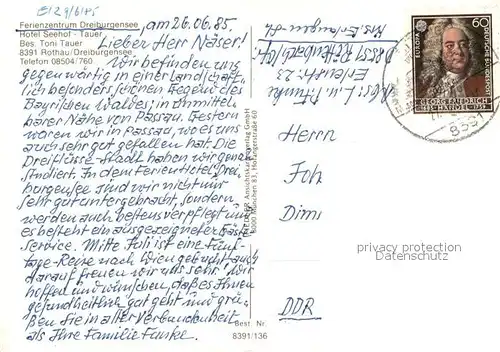 Ferienzentrum Dreiburgensee
Hotel Seehof - Tauer
Bes. Toni Tauer
8391 Rothau/Dreiburgensee
Telefon 08504/760
am 26.06.85.
Lieber Herr Näser!
Wir befinden uns
gegenwärtig in einer landschaft-
lich besonders schönen Gegend des
Bayrischen Waldes, in unmittel-
barer Nähe von Passau. Gestern
waren wir in Passau, wo es uns
auch sehr gut gefallen hat. Die
Dreiflüsse-Stadt haben wir genau
studiert. In dem Ferienhotel Drei-
burgensee sind wir nicht nur
sehr gut untergebracht, sondern
werden auch bestens verpflegt und
es besteht ein ausgezeichneter Gäste-
Service. Mitte Juli ist eine Fünf-
tage-Reise nach Wien gebucht auch
darauf freuen wir uns sehr! Wir
hoffen und wünschen, daß es Ihnen
gesundheitlich gut geht und grü-
ßen Sie in alter Verbundenheit
als Ihre Familie Funke.
Ansichtskartenverlag GmbH
8000 München 83, Hofangerstraße 60
Best. Nr.
8391/136
Abs.: L. u. P. Funke
Erlenstr. 23
Krs. Erlangen-H
Herrn
Joh
Dimi
DDR
EUROPA
CEPT
60
DEUTSCHE BUNDESPOST
GEORG FRIEDRICH
1685 HÄNDEL 1759
8391
watermark protection
Datenschutz